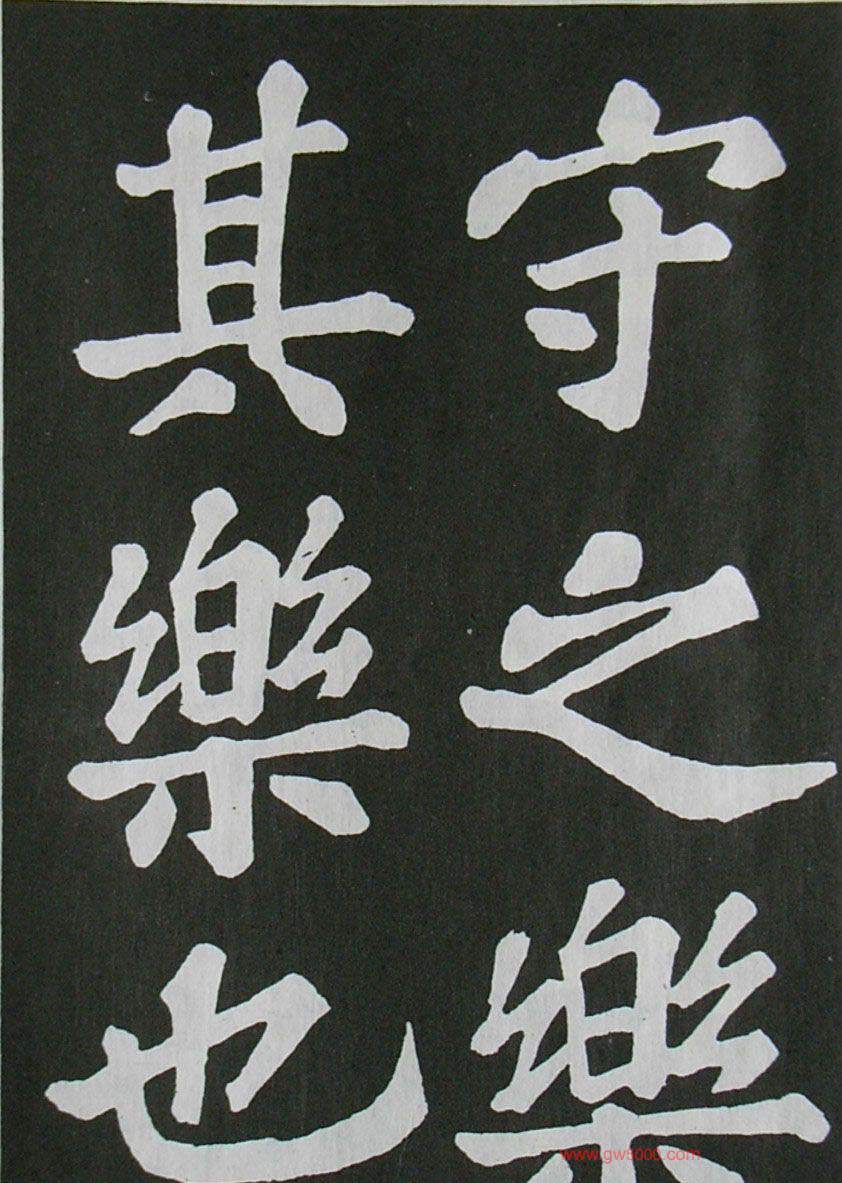 守之樂
其樂也
www.gw5000.com